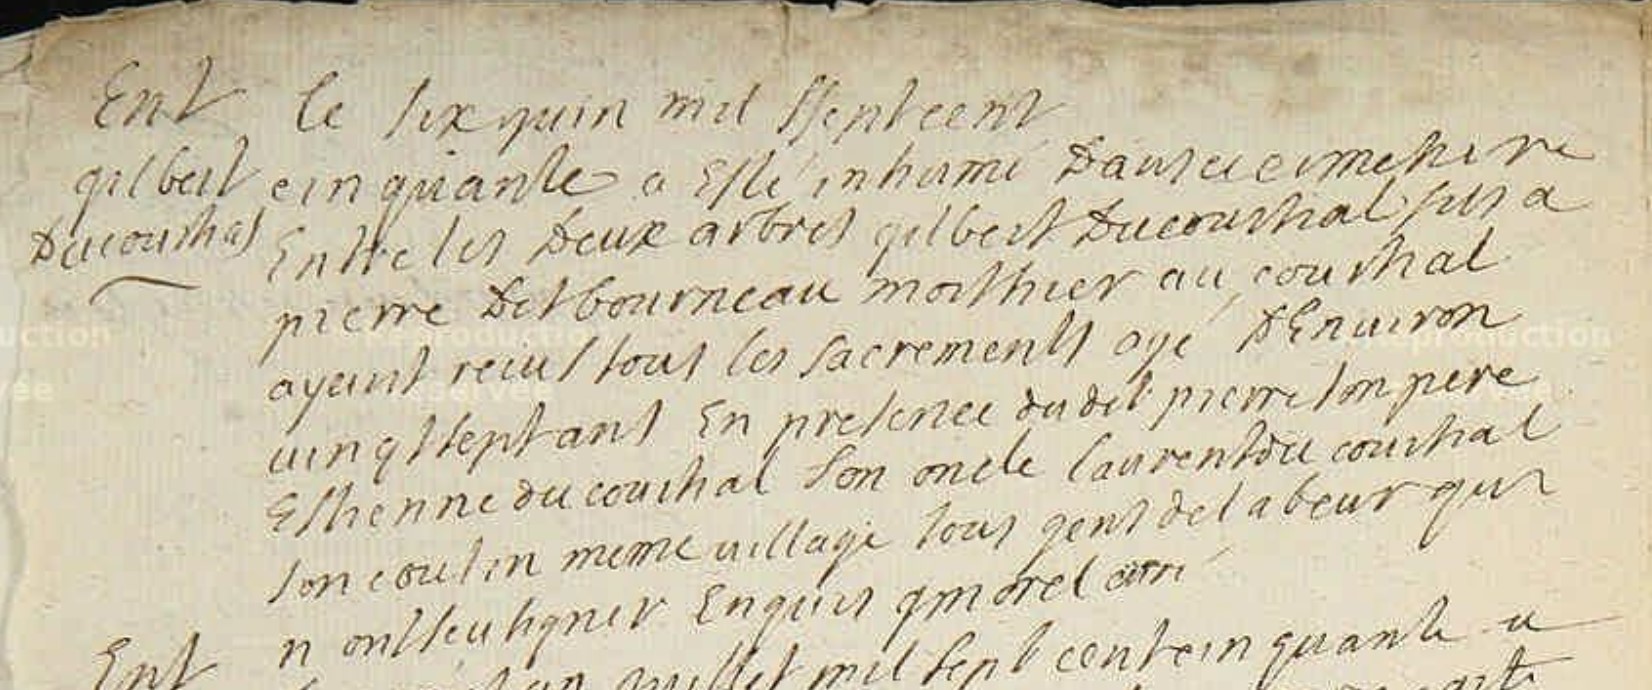 Ent le six juin mil ssept cent
gilbert cinquante a Esté inhumé Dans ce cimetiere
Ducourthal Entre les Deux arbres gilbert Ducourthal fils a
pierre Det bourneau au courthal
ayant recus tous les sacrements agé D'Environ
uingt sept ans En presence dudit pierre son pere
Esthienne du courthal son oncle laurent du courthal
son cousin meme uillage tous gens de labeur qui
n ont seu signer Enquis curé
Ent mil sept cent cinquante a